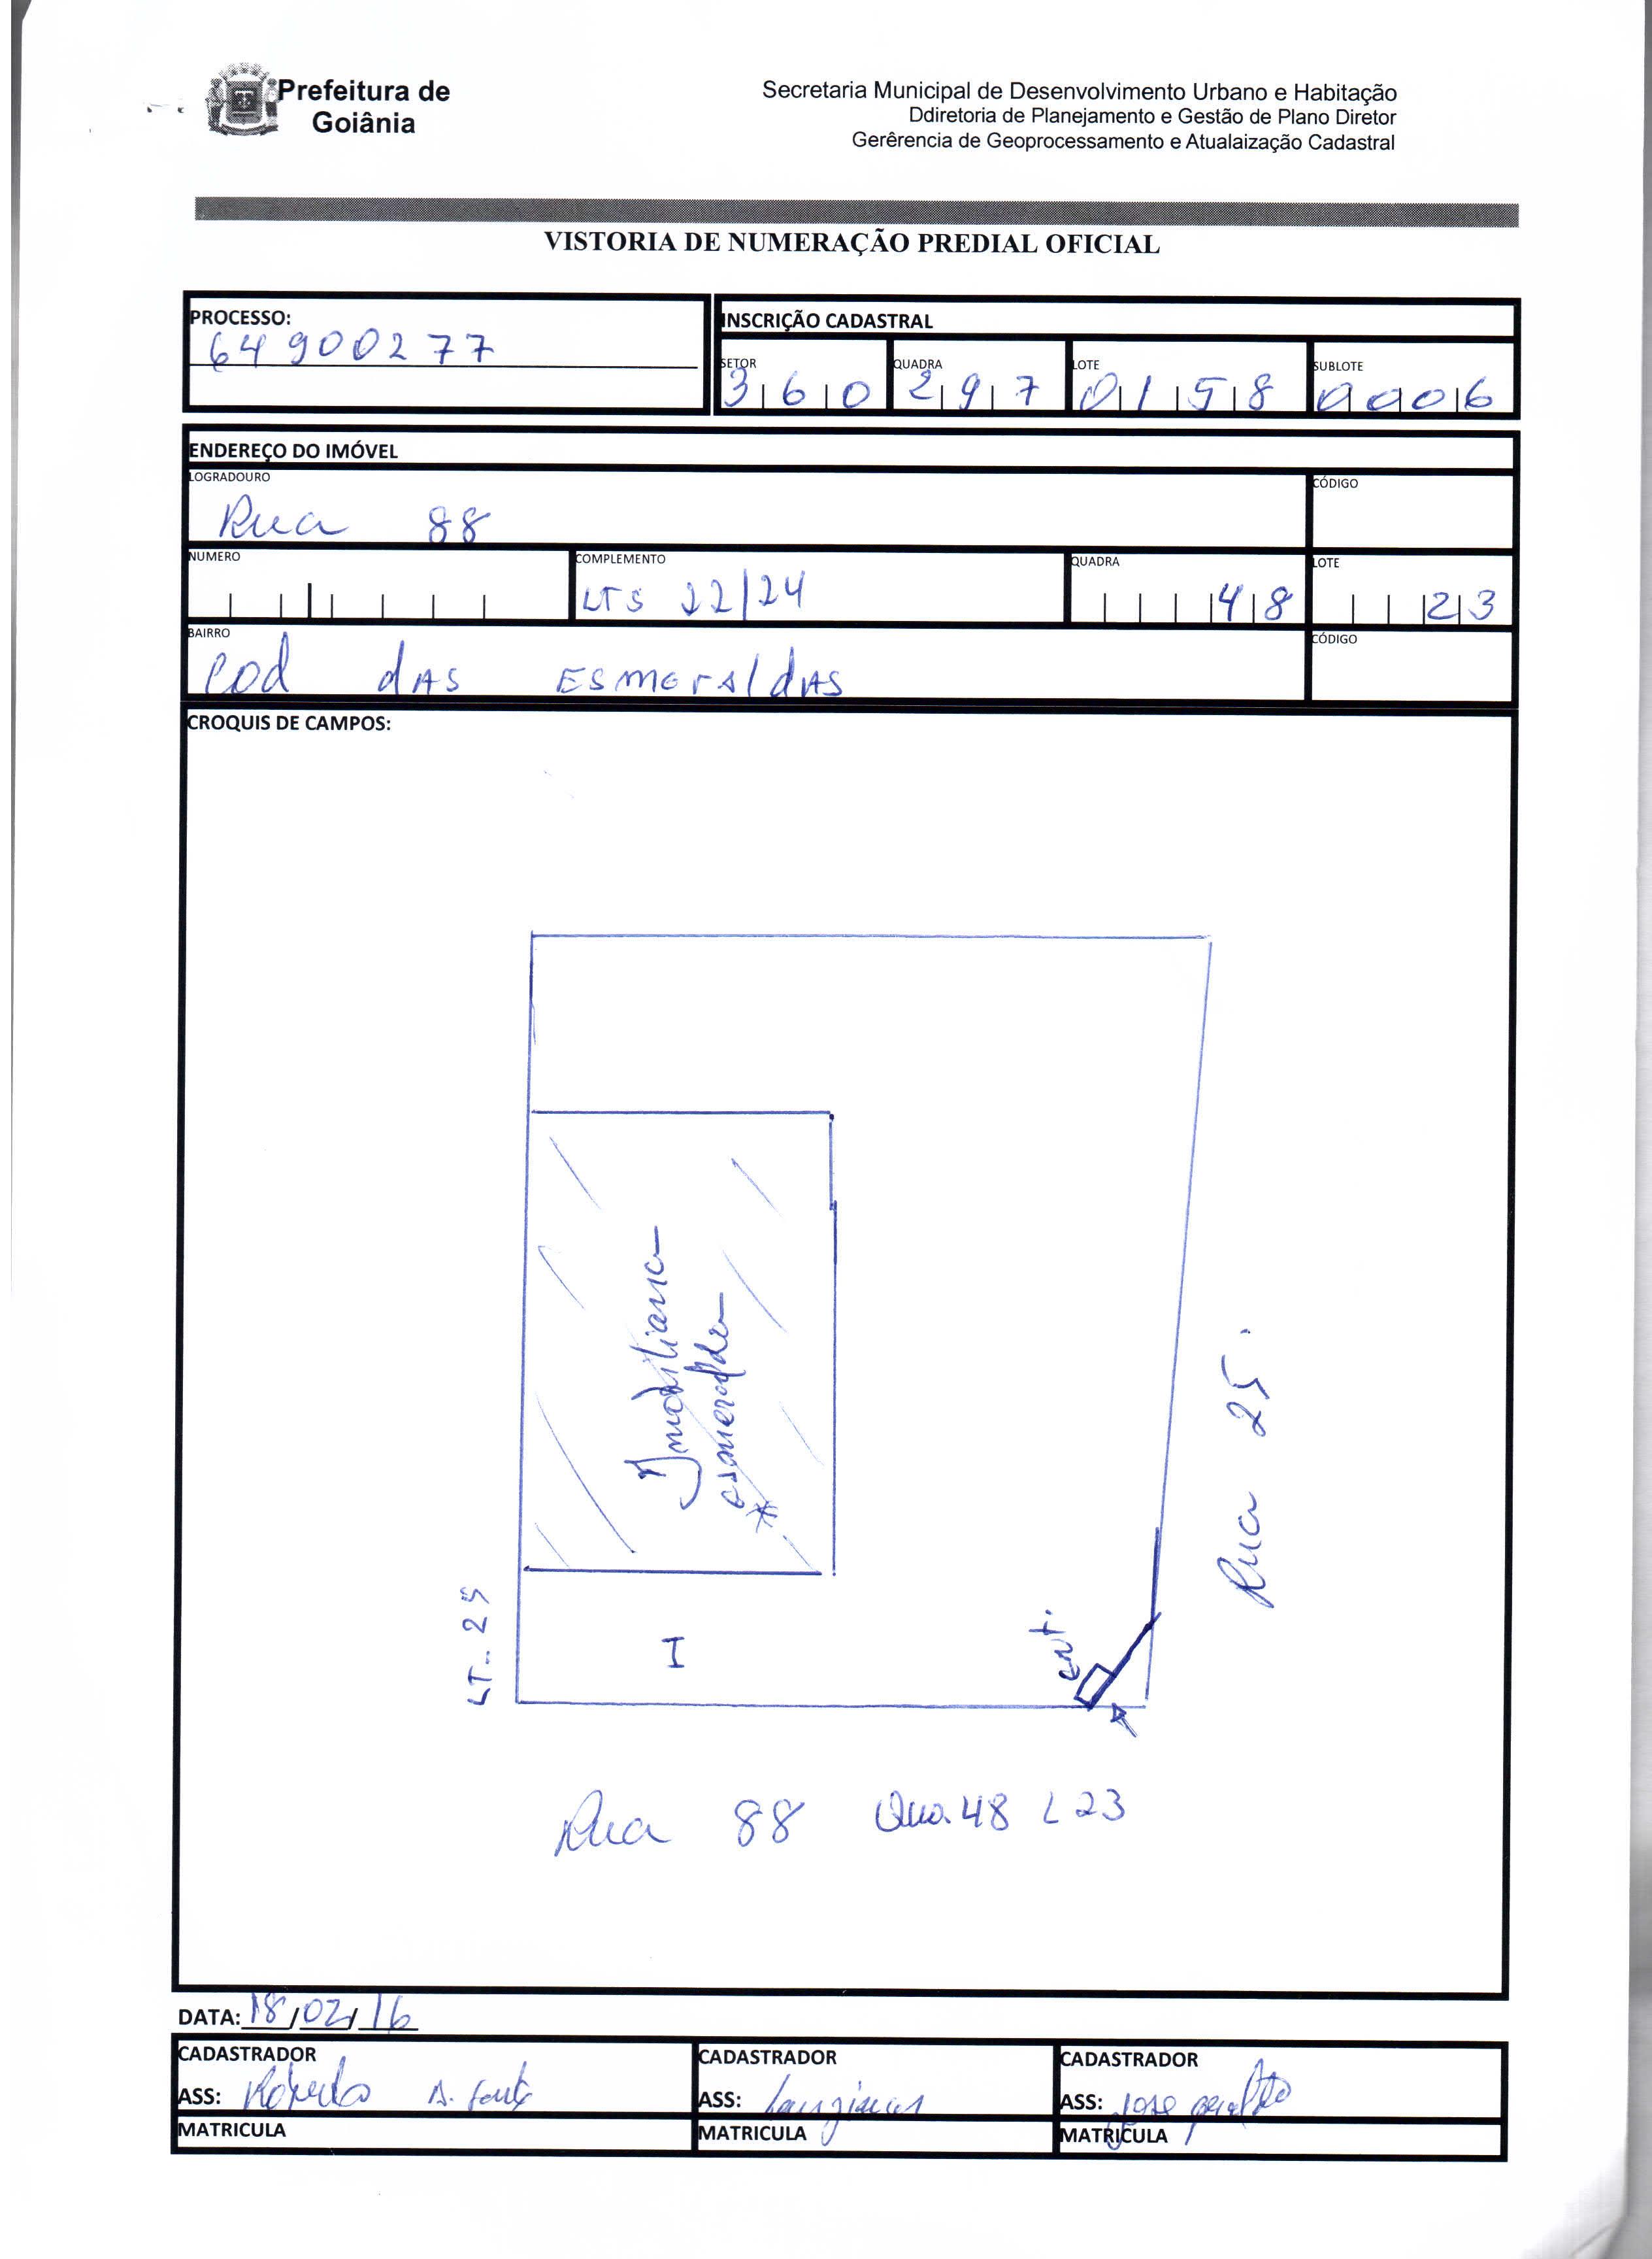 Prefeitura de
Goiânia
Secretaria Municipal de Desenvolvimento Urbano e Habitação
Ddiretoria de Planejamento e Gestão de Plano Diretor
Gerêrencia de Geoprocessamento e Atualaização Cadastral
VISTORIA DE NUMERAÇÃO PREDIAL OFICIAL
PROCESSO:
64900277
INSCRIÇÃO CADASTRAL
SETOR QUADRA LOTE SUBLOTE
360 297 0158 0006
ENDEREÇO DO IMÓVEL
LOGRADOURO CÓDIGO
Rua 88
NUMERO COMPLEMENTO QUADRA LOTE
LTS 22/24 48 23
BAIRRO CÓDIGO
Cod dAS ESmerAldAS
CROQUIS DE CAMPOS:
Imobiliaria
esmeralda
*
Rua 25
LT- 25
I
ent.
Rua 88 Qua. 48 L 23
DATA: 18/02/16
CADASTRADOR CADASTRADOR CADASTRADOR
ASS: Roberto ASS: ASS: Jose
MATRICULA MATRICULA MATRICULA